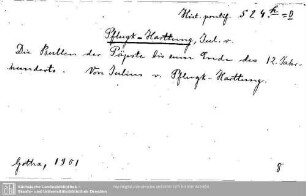 Hist. pontif. 524 k=0
Pflugk-Harttung, Jul. v.
Die Bullen der Päpste bis zum Ende des 12. Jahr-
hunderts. Von Julius v. Pflugk-Harttung.
Gotha, 1901
8
Sächsische Landesbibliothek -
Staats- und Universitätsbibliothek Dresden